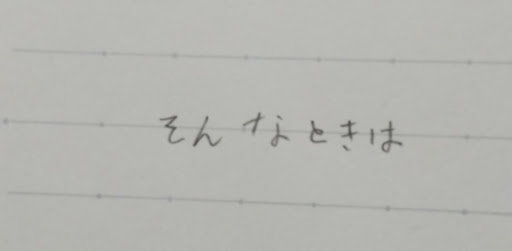 そんなときは